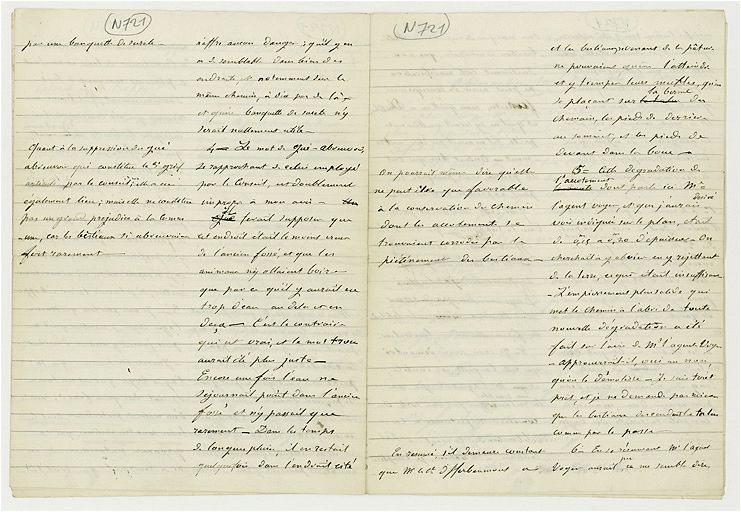 N721
par une banquette de sureté —
Quant à la suppression du gué
abreuvoir qui constitue le 5e grief
articulé par le conseil, elle a eu
également lieu; mais elle ne constitue
pas un grand préjudice à la commune
car les bestiaux s'y abreuvaient
fort rarement —
n'offre aucun danger; qu'il y en
a de semblable dans bien des
endroits, et notamment sur le
même chemin, à dix pas de là
et qu'une banquette de sureté n'y
serait nullement utile —
4 — Le mot de gué-abreuvoir,
se rapportant à celui employé
par le Conseil, est doublement
impropre à mon avis —
ferait supposer que
cet endroit était le moins creux
de l'ancien fossé, et que les
animaux n'y allaient boire
que parce qu'il y aurait eu
trop d'eau au delà et en
deçà — C'est le contraire
qui est vrai, et le mot trou
aurait été plus juste —
Encore une fois l'eau ne
séjournait point dans l'ancien
fossé et n'y passait que
rarement — Dans les temps
de longue pluie, il en restait
quelquefois dans l'endroit cité
N721
On pourrait même dire qu'elle
ne peut être que favorable
à la conservation du chemin
dont les accotements se
trouvaient corrodés par le
piétinement des bestiaux —
En résumé, s'il demeure constant
que Mr le Ct d'Offerbaumont a
et les bestiaux revenant de la pâture
ne pouvaient qu'en l'atteindre
et y tremper leurs mufles, qu'en
se plaçant sur la berme du
chemin, les pieds de derrière
au sommet, et les pieds de
devant dans la boue —
5 — Cette dégradation de
l'accotement dont parle ici Mr
l'agent voyer, et que j'aurais
désiré
voir indiquée sur le plan, était
de 0,15 à 0,20 d'épaisseur. On
cherchait à y obvier en y rejettant
de la terre, ce qui était insuffisant
— L'empierrement plus solide qui
met le chemin à l'abri de toute
nouvelle dégradation a été
fait sur l'avis de Mr l'agent Voyer
— approuverait-il, oui ou non,
qu'on le démolisse — Je suis tout
prêt, et je ne demande pas mieux
que les bestiaux descendent le talus
comme par le passé —
En se résumant Mr l'agent
Voyer aurait pu, ce me semble dire,